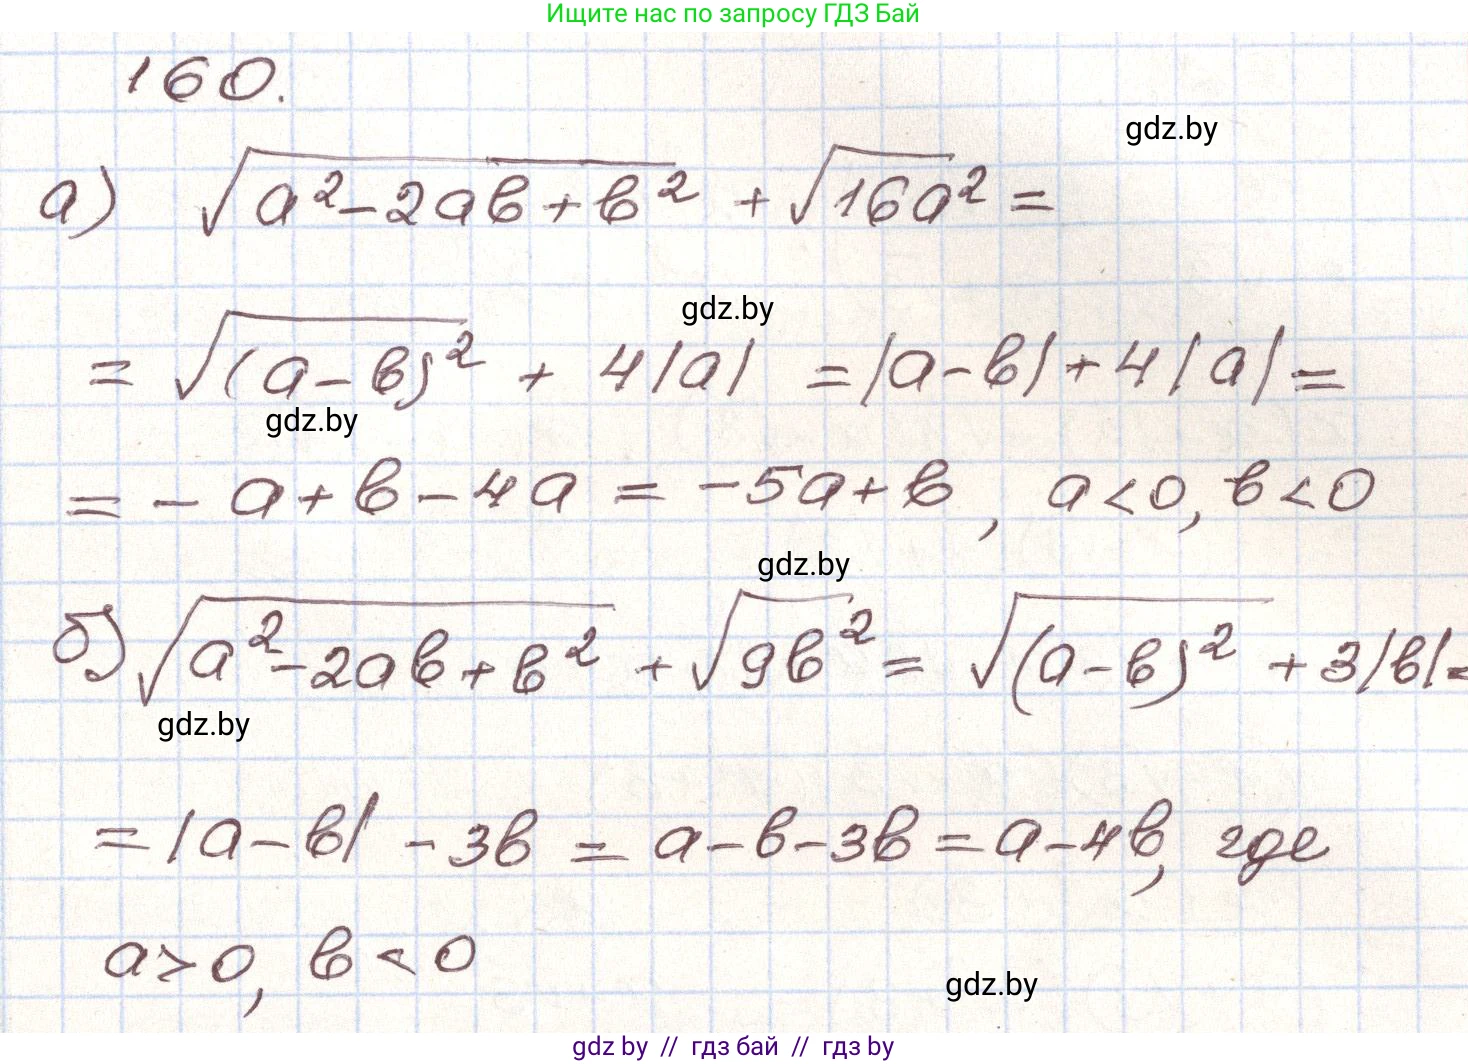 Ищите нас по запросу ГДЗ Бай
160.
gdz.by
а) √(a²-2ab+b²) + √(16a²) =
gdz.by
= √((a-b)²) + 4|a| = |a-b| + 4|a| =
gdz.by
= -a+b-4a = -5a+b, a<0, b<0
gdz.by
б) √(a²-2ab+b²) + √(9b²) = √((a-b)²) + 3|b| =
gdz.by
= |a-b| - 3b = a-b-3b = a-4b, где
a>0, b<0
gdz.by
gdz by // гдз бай // гдз by